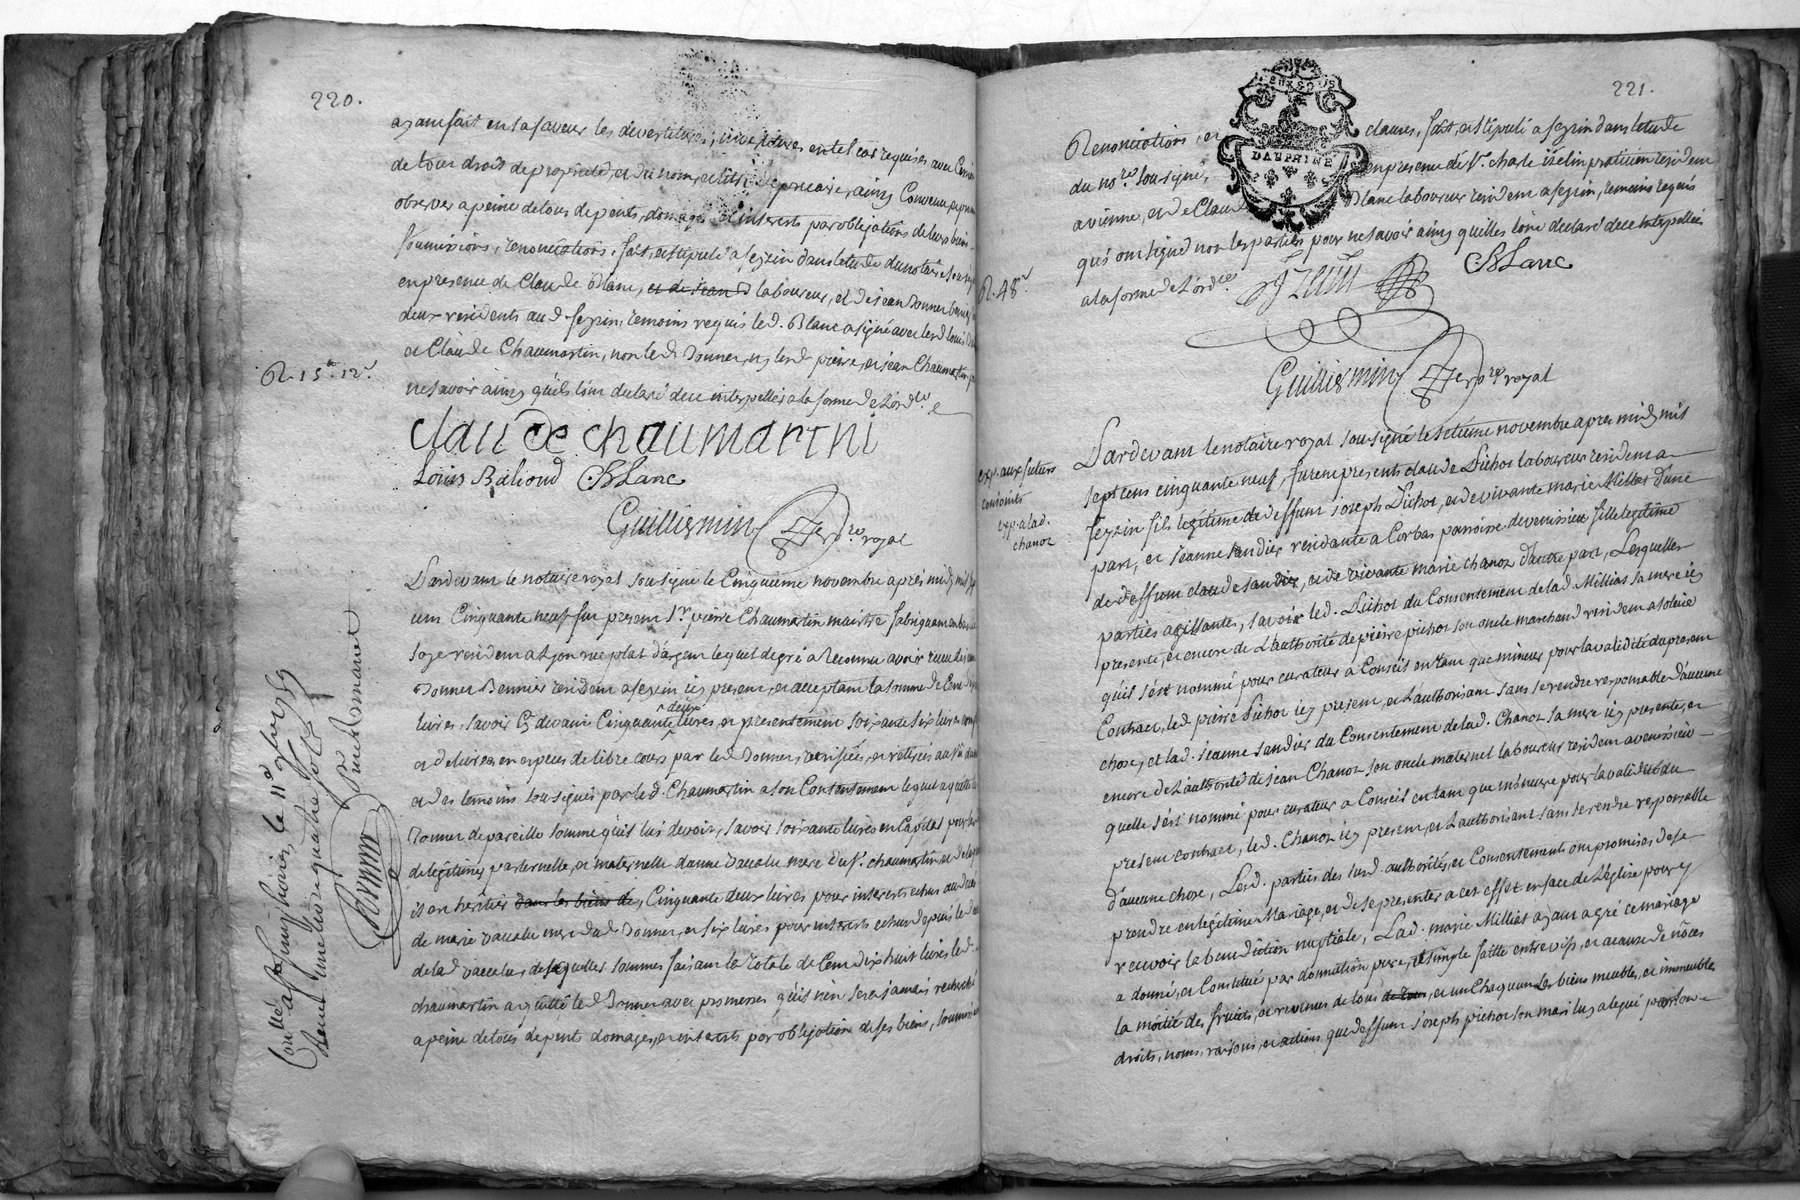 220.
ayant fait en sa faveur les devertitures, investitures en tel cas requises avec
de tous droits de propriété, et du nom, et titre de precaire, ainsy Convenu, et promis
observer a peine de tous depents, domages et interests par obligations de leurs biens,
soumissions, renonciations, fait, et stipulé a feyzin dans letude du notaire
en presence de Claude Blanc, et de jean laboureur, et de jean Donner
deux residents aud. feyzin, temoins requis led. Blanc a signé avec lesd. louis
et Claude Chaumartin, non led. Donner, ny lesd. pierre, et jean Chaumartin
R. 15 s. 12 d.
ne savoir ainsy qu'ils lont declaré de ce interpellés a la forme de L'ord.ce
claude chaumartin
Louis Balioud CBLanc
Guilliermin no.re royal
Pardevant le notaire royal sousigné le Cinquieme novembre aprés midy mil sept
cent Cinquante neuf fut present S.r pierre Chaumartin maistre fabriquant en
soye resident a Lyon rue plat d'argent lequel de gré a Reconnu avoir receu
Donner Bennier resident a feyzin icy present, et acceptant la somme de Cent
livres savoir Cy devant Cinquante deux livres, et presentement soixante six livres
et delivrés en especes de libre cours par led. Donner, verifiées, et retirées au vû
et des temoins sousignés par led. Chaumartin a son Contentement lequel a quitté
Donner de pareille somme qu'il lui devoit, savoir soixante livres en Capital pour
de légitimes paternelle, et maternelle danne Vacalu mere du S.r chaumartin, et
il en heritier dans les biens de, Cinquante deux livres pour interests echus
de marie Vacalu mere dud. Donner, et six livres pour interests echus depuis le
de lad. vacalu, desquelles sommes faisant la totale de Cent dix huit livres led.
chaumartin a quitté led. Donner avec promesses qu'il n'en sera jamais recherché
a peine de tous depents domages, et interests par obligation de ses biens, soumissions
Conllé a St Simphorien le 11e 9bre 1759
Reçu une livre quatre sols
Romanet
221.
DAUPHINE
Renonciations, et clauses, fait, et stipulé a feyzin dans letude
du no.re sousigné, en presence de S.r charle izelin praticien resident
a vienne, et de Claude Blanc laboureur resident a feyzin, temoins requis
qui ont signé non les parties pour ne savoir ainsy quelles lont declaré de ce interpellées
R. 48 s.
a la forme de L'ord.ce
Izelin CBLanc
Guilliermin no.re royal
Pardevant le notaire royal sousigné le septième novembre aprés midy mil
exp. aux futurs
conjoints
exp. a lad.
chanoz
sept cens cinquante neuf, furent presents claude Pichoz laboureur resident a
feyzin fils légitime de deffunt joseph Pichoz, et de vivante marie Milliat d'une
part, et jeanne sandier residante a Corbas parroisse de venissieu fille legitime
de deffunt claude sandier, et de vivante marie chanoz d'autre part, Lesquelles
parties agissantes, savoir led. Pichoz du Consentement de lad. Milliat sa mere icy
presente, et encore de L'authorité de pierre pichoz son oncle marchand resident a solaise
qu'il s'est nommé pour curateur a Conseil en tant que mineur pour la validité du present
Contract, led. pierre Pichoz icy present, et L'authorisant sans se rendre responsable d'aucune
chose, et lad. jeanne sandier du Consentement de lad. Chanoz sa mere icy presente, et
encore de L'authorité de jean Chanoz son oncle maternel laboureur resident a venissieu
quelle s'est nommé pour curateur a Conseil en tant que mineure pour la validité du
present contract, led. Chanoz icy present, et L'authorisant sans se rendre responsable
d'aucune chose, Lesd. parties des susd. authorités, et Consentements ont promises de se
prendre en légitime Mariage, et de se presenter a cet effet en face de L'église pour y
recevoir la benediction nuptiale, Lad. marie Milliat ayant agré ce mariage
a donné, et Constitué par donnation pure, et simple faitte entre vifs, et a cause de nôces
la moitié des fruits, et revenus de tous de tous, et un Chaquun Les biens meubles, et immeubles
droits, noms, raisons, et actions que deffunt joseph pichoz son mari luy a legué par son